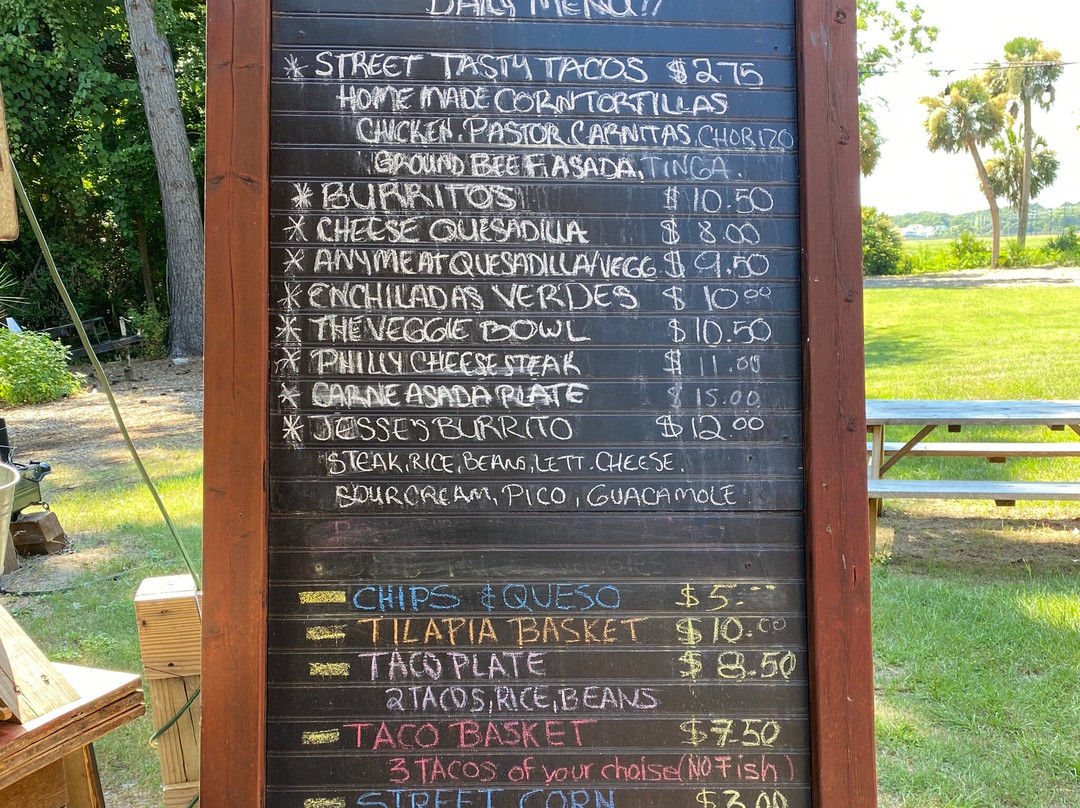 DAILY MENU!!
* STREET TASTY TACOS $2.75
HOME MADE CORN TORTILLAS
CHICKEN. PASTOR. CARNITAS. CHORIZO
GROUND BEEF. ASADA, TINGA.
* BURRITOS $10.50
* CHEESE QUESADILLA $8.00
* ANY MEAT QUESADILLA/VEGG. $9.50
* ENCHILADAS VERDES $10.00
* THE VEGGIE BOWL $10.50
* PHILLY CHEESE STEAK $11.00
* CARNE ASADA PLATE $15.00
* JESSE'S BURRITO $12.00
STEAK, RICE, BEANS, LETT. CHEESE.
SOUR CREAM, PICO, GUACAMOLE
CHIPS & QUESO $5.00
TILAPIA BASKET $10.00
TACO PLATE $8.50
2 TACOS, RICE, BEANS
TACO BASKET $7.50
3 TACOS of your choise (NO Fish)
STREET CORN $3.00